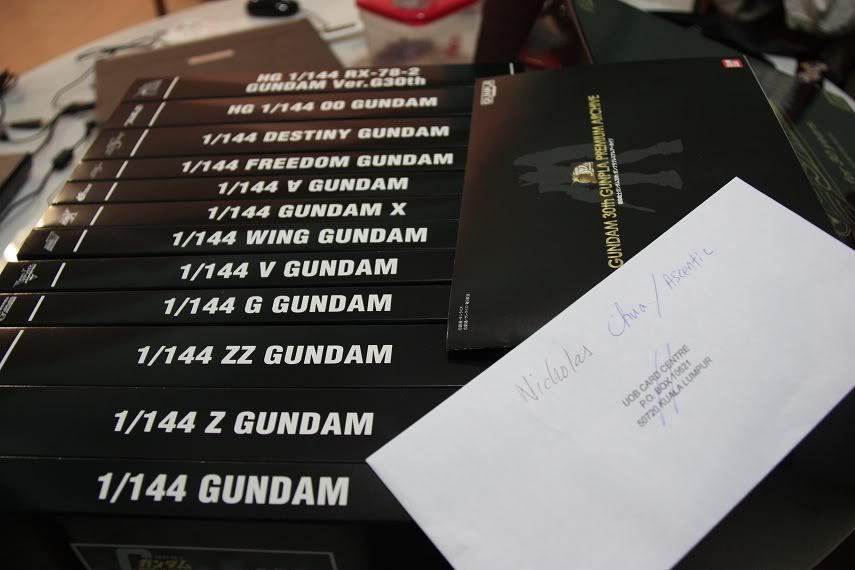 HG 1/144 RX-78-2
GUNDAM Ver.G30th
HG 1/144 00 GUNDAM
1/144 DESTINY GUNDAM
1/144 FREEDOM GUNDAM
1/144 ∀ GUNDAM
1/144 GUNDAM X
1/144 WING GUNDAM
1/144 V GUNDAM
1/144 G GUNDAM
1/144 ZZ GUNDAM
1/144 Z GUNDAM
1/144 GUNDAM
GUNPLA
GUNDAM 30th GUNPLA PREMIUM ARCHIVE
Nicholas Chua / Ascentic
UOB CARD CENTRE
P.O. BOX 10621
50720 KUALA LUMPUR
ガンダム